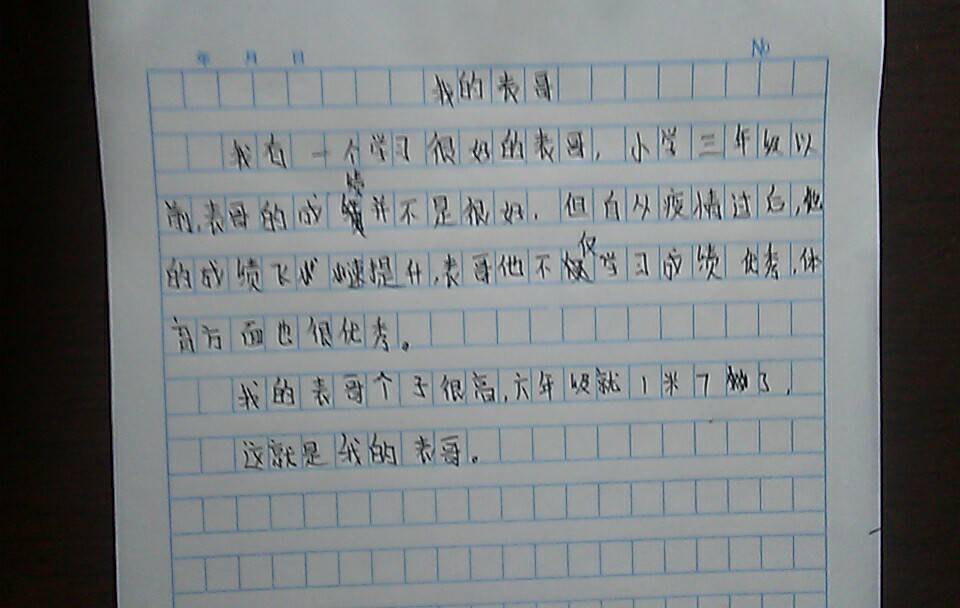 年 月 日 No
我的表哥
我有一个学习很好的表哥，小学三年级以
前，表哥的成绩并不是很好，但自从疫情过后，他
的成绩飞速提升，表哥他不仅学习成绩优秀，体
育方面也很优秀。
我的表哥个子很高，六年级就1米7了，
这就是我的表哥。